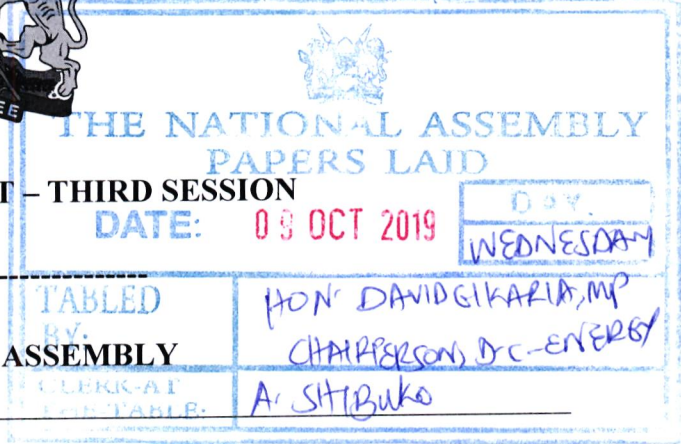 EE
THE NATIONAL ASSEMBLY
PAPERS LAID
T – THIRD SESSION
DATE: 09 OCT 2019
DAY.
WEDNESDAY
TABLED
BY:
HON. DAVID GIKARIA, MP
CHAIRPERSON, D-C-ENERGY
ASSEMBLY
CLERK-AT
THE-TABLE:
A. SHIBUKO